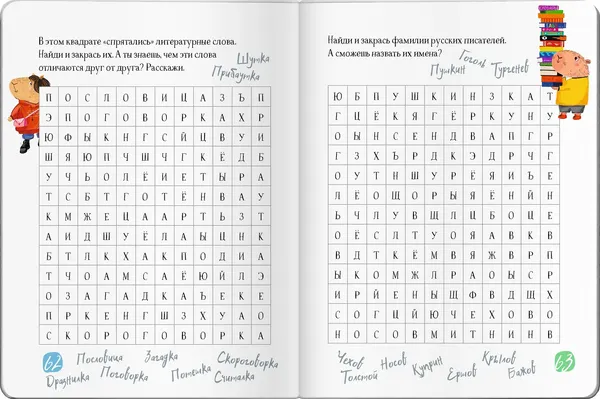 В этом квадрате «спрятались» литературные слова.
Найди и закрась их. А ты знаешь, чем эти слова
отличаются друг от друга? Расскажи.
Шутка
Прибаутка
П О С Л О В И Ц А З Ъ П
Э П О Г О В О Р К А Х Р
Ю Ф Ы К Н Г С Й Ц В У И
Ш Я Ю П Ч Ш Ч Г К Ё Д Б
У Ч Ь О Л Е И Е Т Ы Р А
Т С Б Т Г О Т Ё Н В А У
К М Ж Е Ц А А Р Т Ь З Т
А И Д Ш У Ё Л А Ы Ц Н К
Б Т Л К Х А К П О Д И А
Т Ч О А М С А Ё Ю Й Л Э
О З А Г А Д К А Ъ Е К Е
П Р К Е Н Г Ш З Х У А О
С К О Р О Г О В О Р К А
62
Пословица
Загадка
Скороговорка
Дразнилка
Поговорка
Потешка
Считалка
Найди и закрась фамилии русских писателей.
А сможешь назвать их имена?
Гоголь
Пушкин
Тургенев
Ю Б П У Ш К И Н З К А Т
Г Ц Ё К Я Г Ё Р К У Н У
О Ы Н С Е Н Д В А П Г Р
Г З Х Ъ Р Д К Э Д Р Ч Г
О У Т Н Ш У Р Ё Я И Ъ Е
Л Ё О Щ О Р Ы Я Ё Н Й Н
Ь Ч Л У В Щ Л Ц Б О Ц Е
О Ё С Л Т У О Я А В К В
В Д Т К Ё М В Я Ж В Р П
Ы К О М Ж Л Р А О Ы С Р
И Р Й Е Н Ы Щ Ф В Д Щ Х
С О Г Ц Й Ю Ч Е Х О В О
Н О С О В М И Т Н И Н В
Чехов
Носов
Крылов
Толстой
Куприн
Ершов
Бажов
63